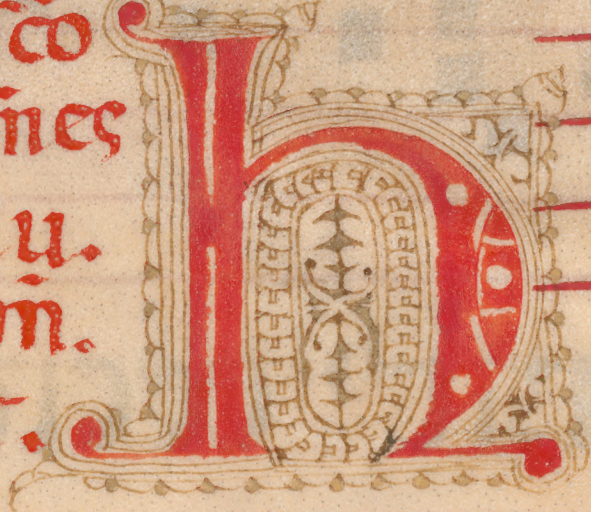 co
nes
u.
m̄.
h